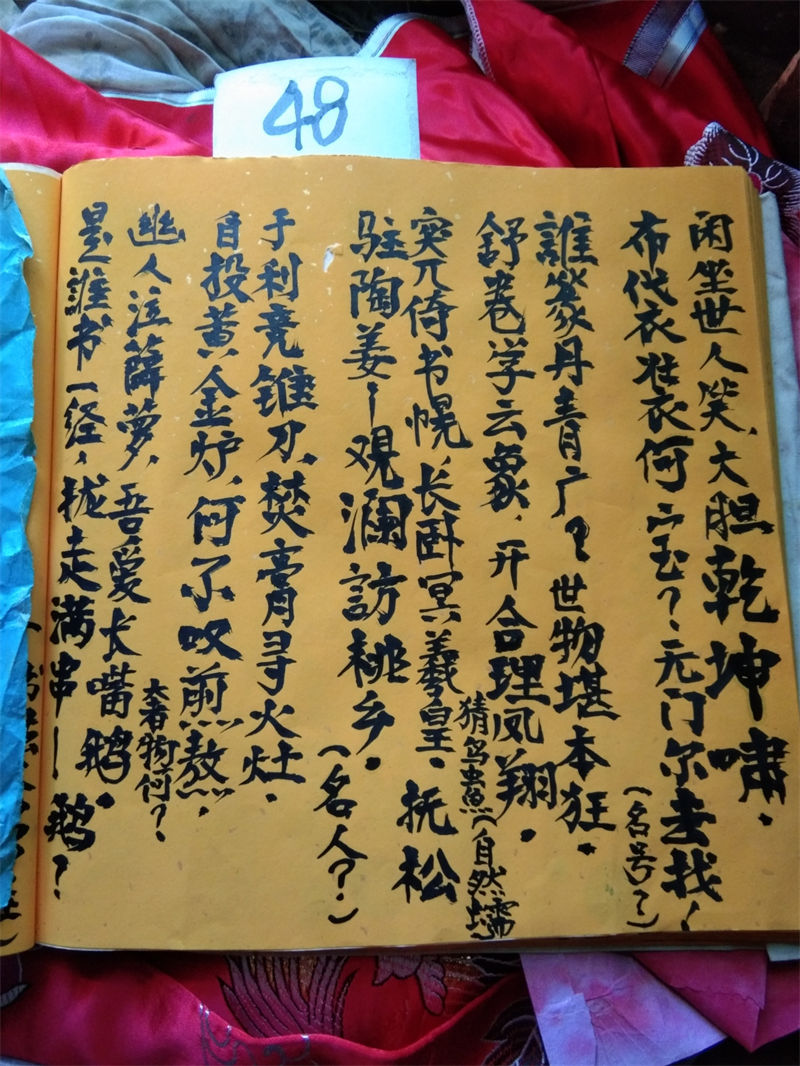 48
闲坐世人笑,大胆乾坤啸。
布代衣壮衣何宝?无门尔去找!
(名号?)
誰篆丹青广,世物堪本狂。
舒卷学云象,开合理凤翔。
猜鸟虫鱼(自然蠕
突兀倚书幌,长卧冥羲皇。抚松
驻陶姜一观澜訪桃乡。
(名人?)
于利竞锥刀,焚膏寻火灶。
自投黄金炉,何不叹煎熬。
奢物何?
幽人泣薜萝,吾爱长嘴鹅。
是誰书一经,拢走满串一鹅?